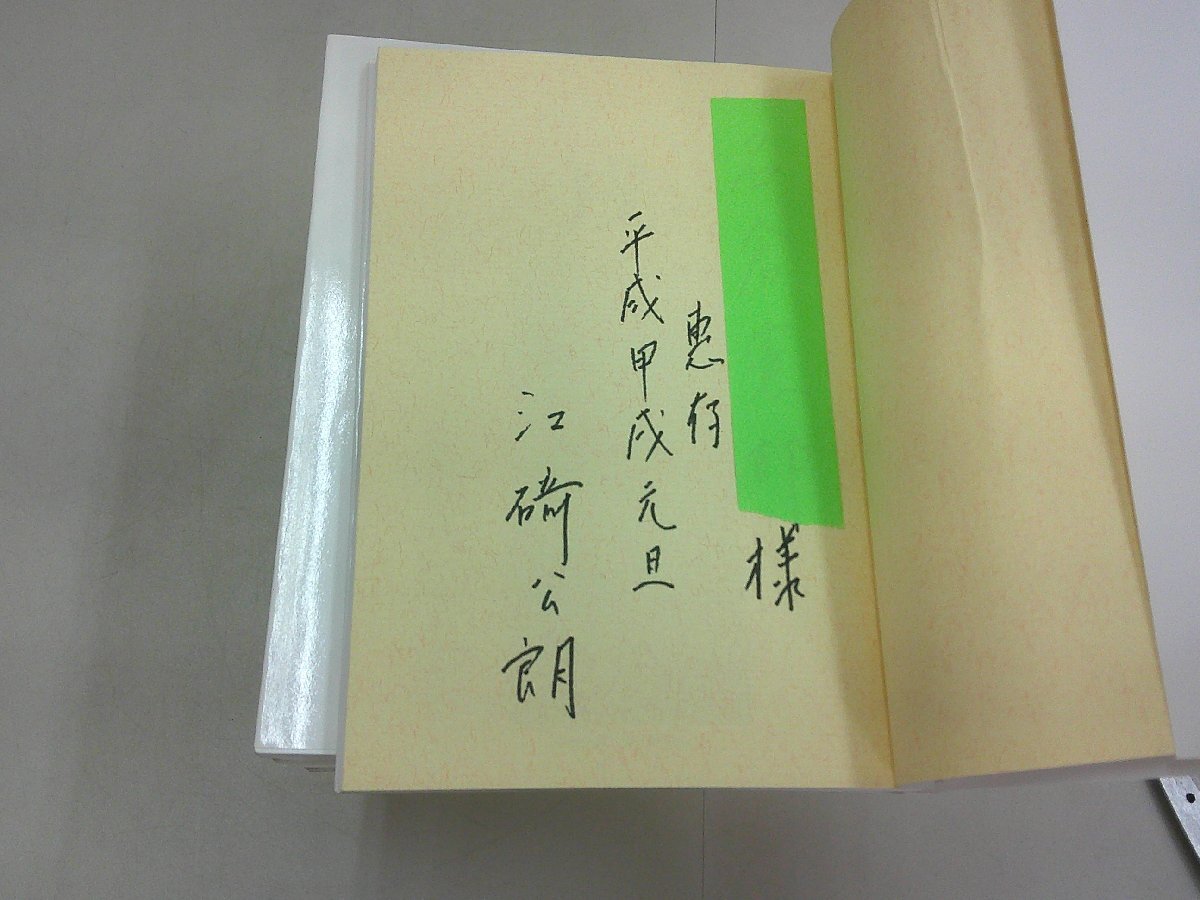 様
恵存
平成甲戌元旦
江碕公朗